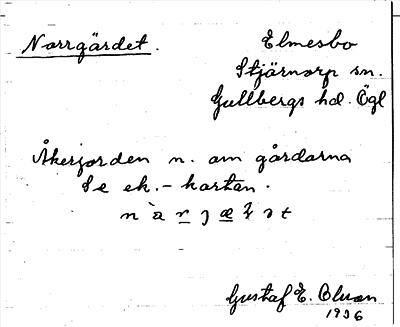 Norrgärdet. Elmesbo
Stjärnorp sn.
Gullbergs hd. Ögl
Åkerjorden n. om gårdarna
Se ek.-kartan.
1936
Gustaf E.